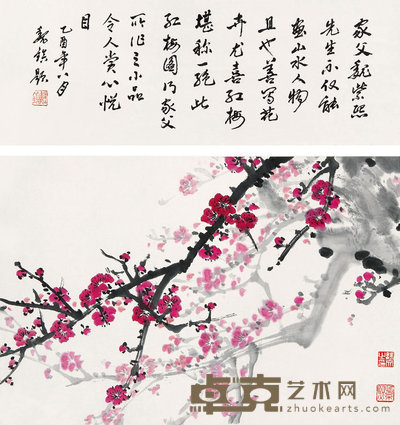 家父魏紫熙
先生不仅能
画山水人物
且也善写花
卉尤喜红梅
堪称一绝此
红梅圖乃家父
所作之小品
令人赏心悦
目
乙酉年八月
题
卓克艺术网
www.zhuokearts.com